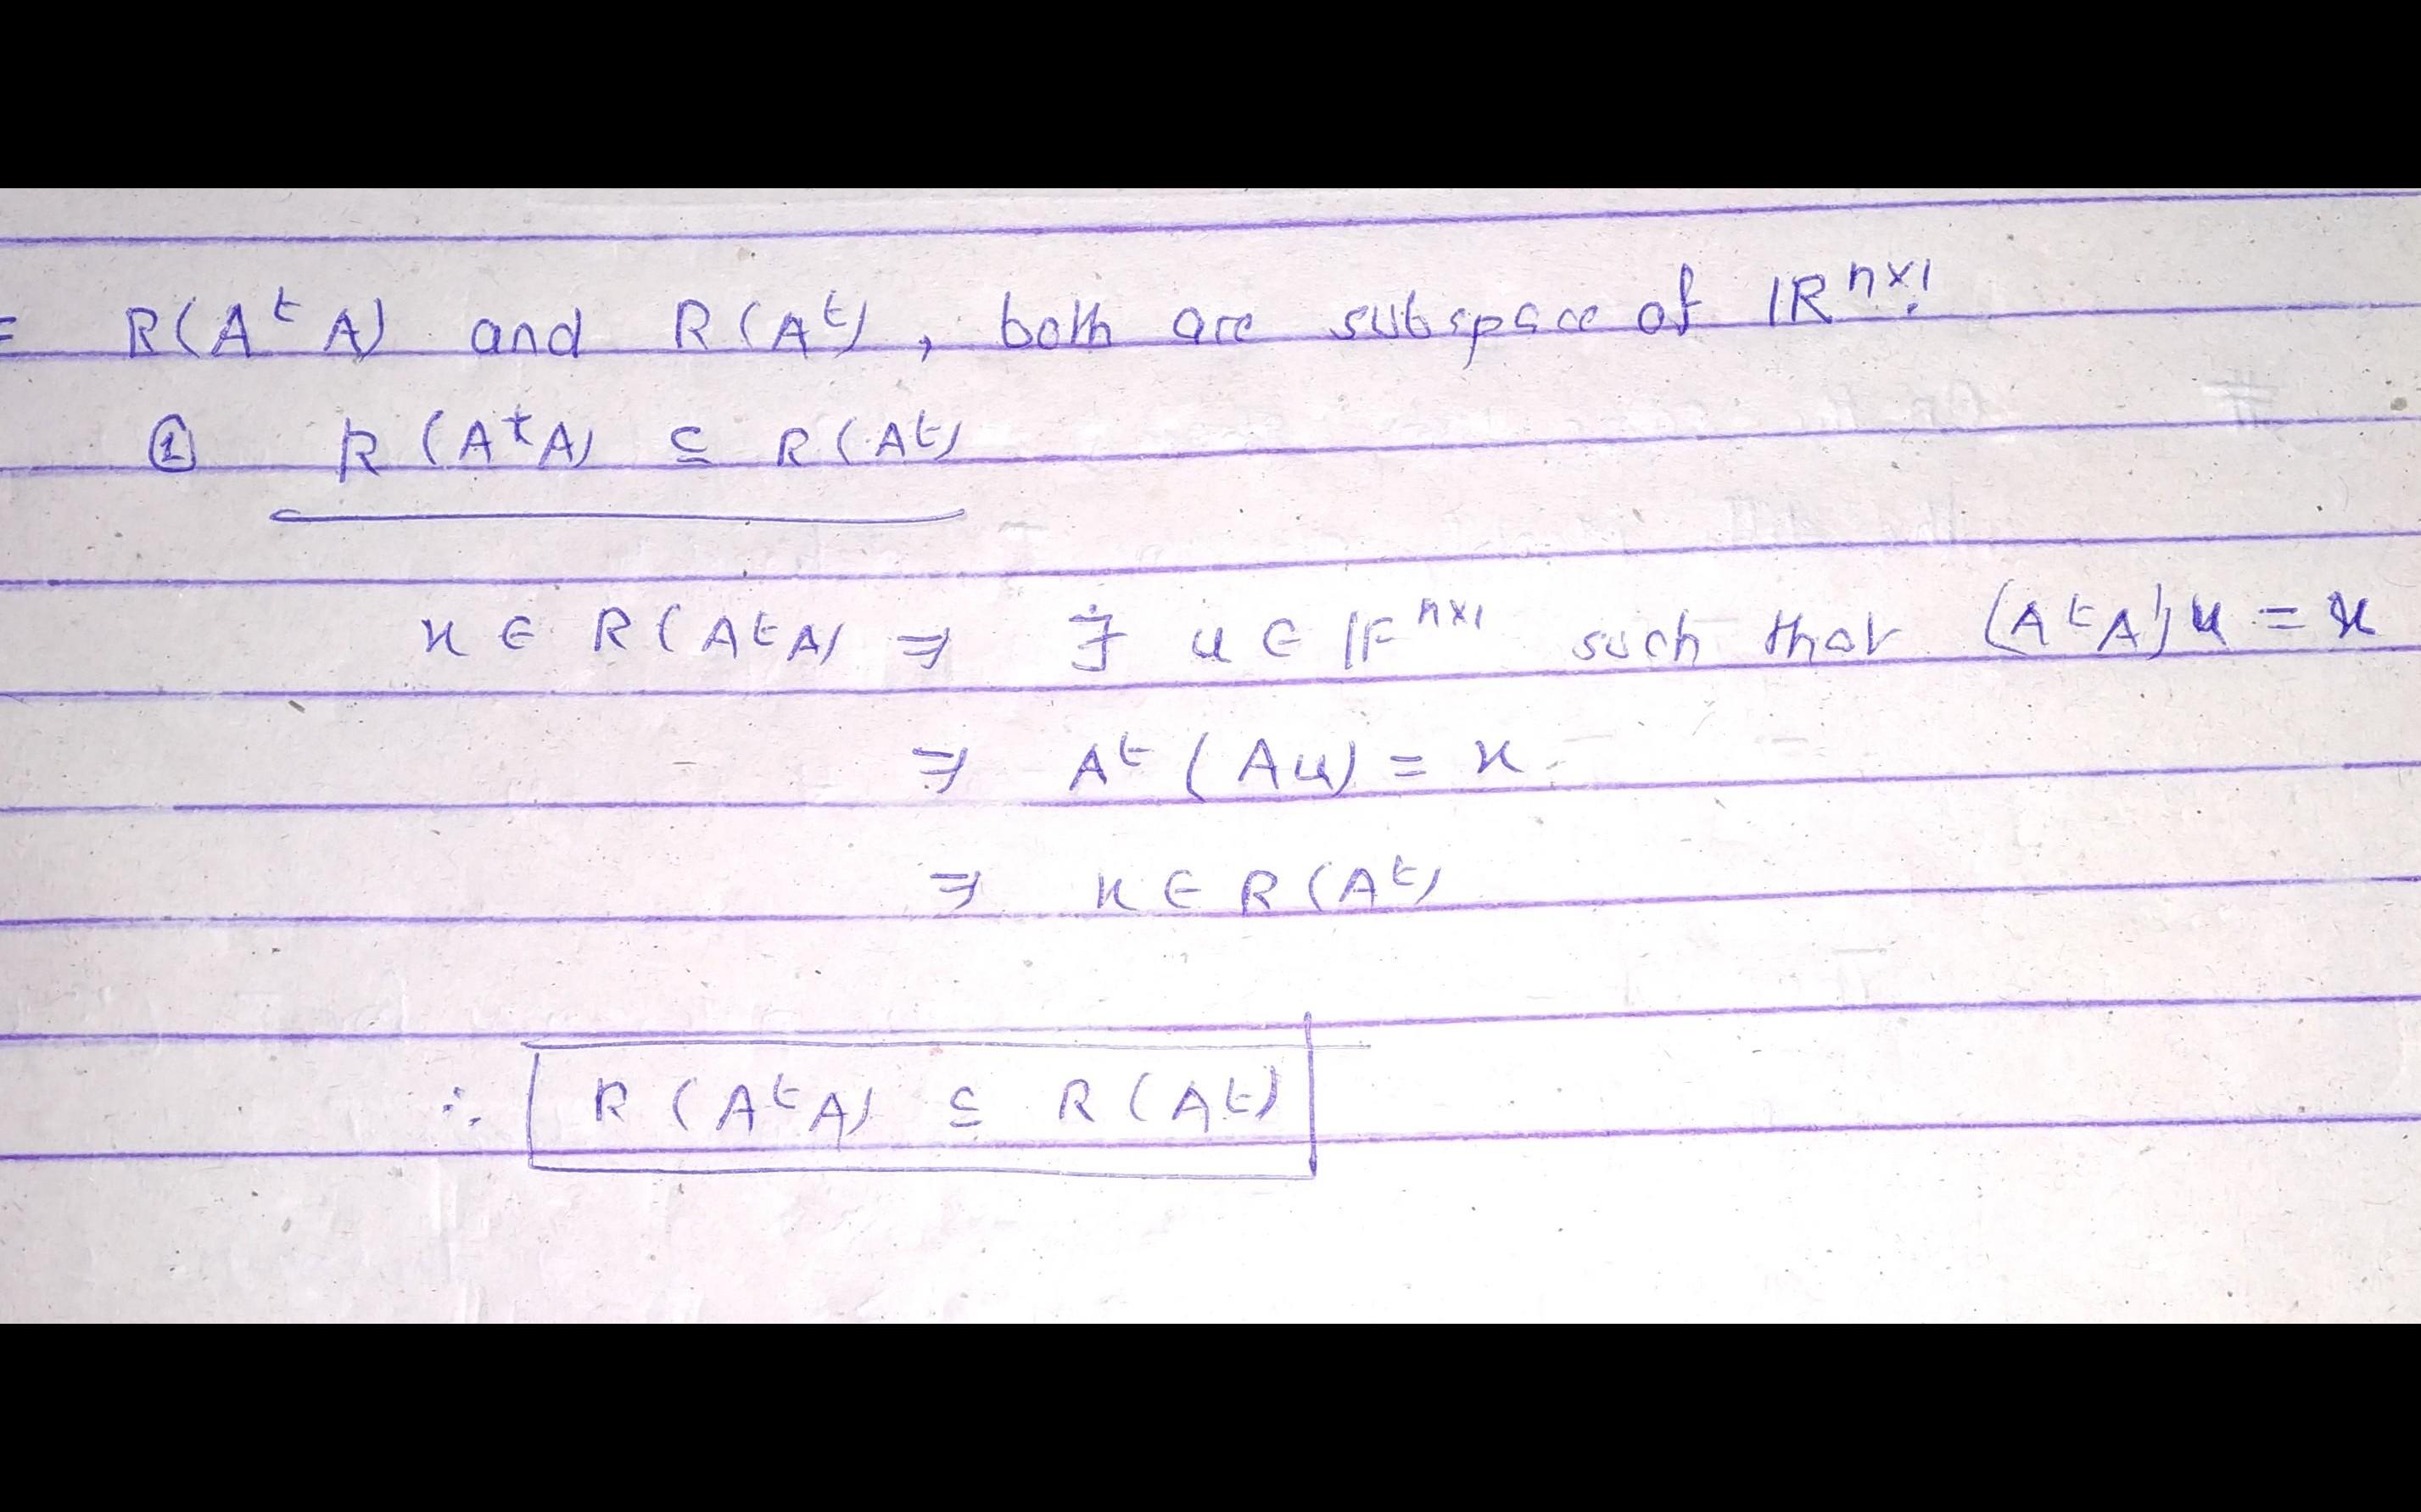 = R(Aᵗ A) and R(Aᵗ), both are subspace of ℝⁿˣ¹.
① R(AᵗA) ⊆ R(Aᵗ)
x ∈ R(AᵗA) ⇒ ∃ u ∈ 𝔽ⁿˣ¹ such that (AᵗA)u = x
⇒ Aᵗ(Au) = x
⇒ x ∈ R(Aᵗ)
∴ R(AᵗA) ⊆ R(Aᵗ)